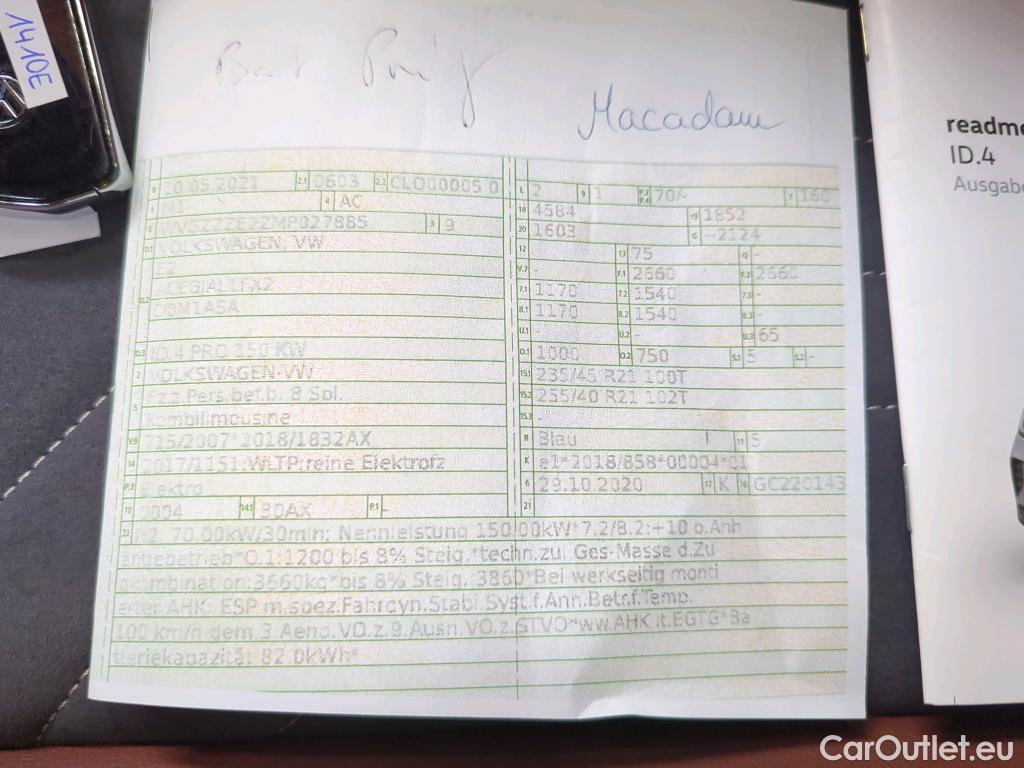 1410E
Macadam
readme
ID.4
Ausgabe
B 10.05.2021 2.1 0603 2.2 CLO00005 0
J M1 4 AC
E 3 9
D.1 VOLKSWAGEN, VW
E2
D.2
D.3 ID.4 PRO 150 KW
2 VOLKSWAGEN-VW
5 Fz.z.Pers.bef.b. 8 Spl.
Kombilimousine
V.9 715/2007*2018/1832AX
14 2017/1151;WLTP;reine Elektrofz
P.3 Elektro
10 0004 14.1 30AX P.1 -
L 2 9 1 P.2 P.4 70/- T 160
18 4584 19 1852
20 1603 G -2124
12 - 13 75 Q -
V.7 - F.1 2660 F.2 2660
7.1 1170 7.2 1540 7.3 -
8.1 1170 8.2 1540 8.3 -
U.1 - U.2 - U.3 65
O.1 1000 O.2 750 S.1 5 S.2 -
15.1 235/45 R21 100T
15.2 255/40 R21 102T
15.3 -
R Blau 11 5
K e1*2018/858*00004*01
6 29.10.2020 17 K 16 GC220143
21
22 P.2: 70.00kW/30min; Nennleistung 150.00kW*7.2/8.2:+10 b.Anh
ängebetrieb*O.1:1200 bis 8% Steig.*techn.zul. Ges-Masse d.Zu
gkombination:3660kg*bis 8% Steig. 3860*Bei werkseitig monti
erter AHK: ESP m.spez.Fahrdyn.Stabi.Syst.f.Anh.Betr.f.Temp.
100 km/h gem.3.Aend.VO.z.9.Ausn.VO.z.STVO*ww.AHK lt.EGTG*Ba
tteriekapazität 82.0kWh*
CarOutlet.eu